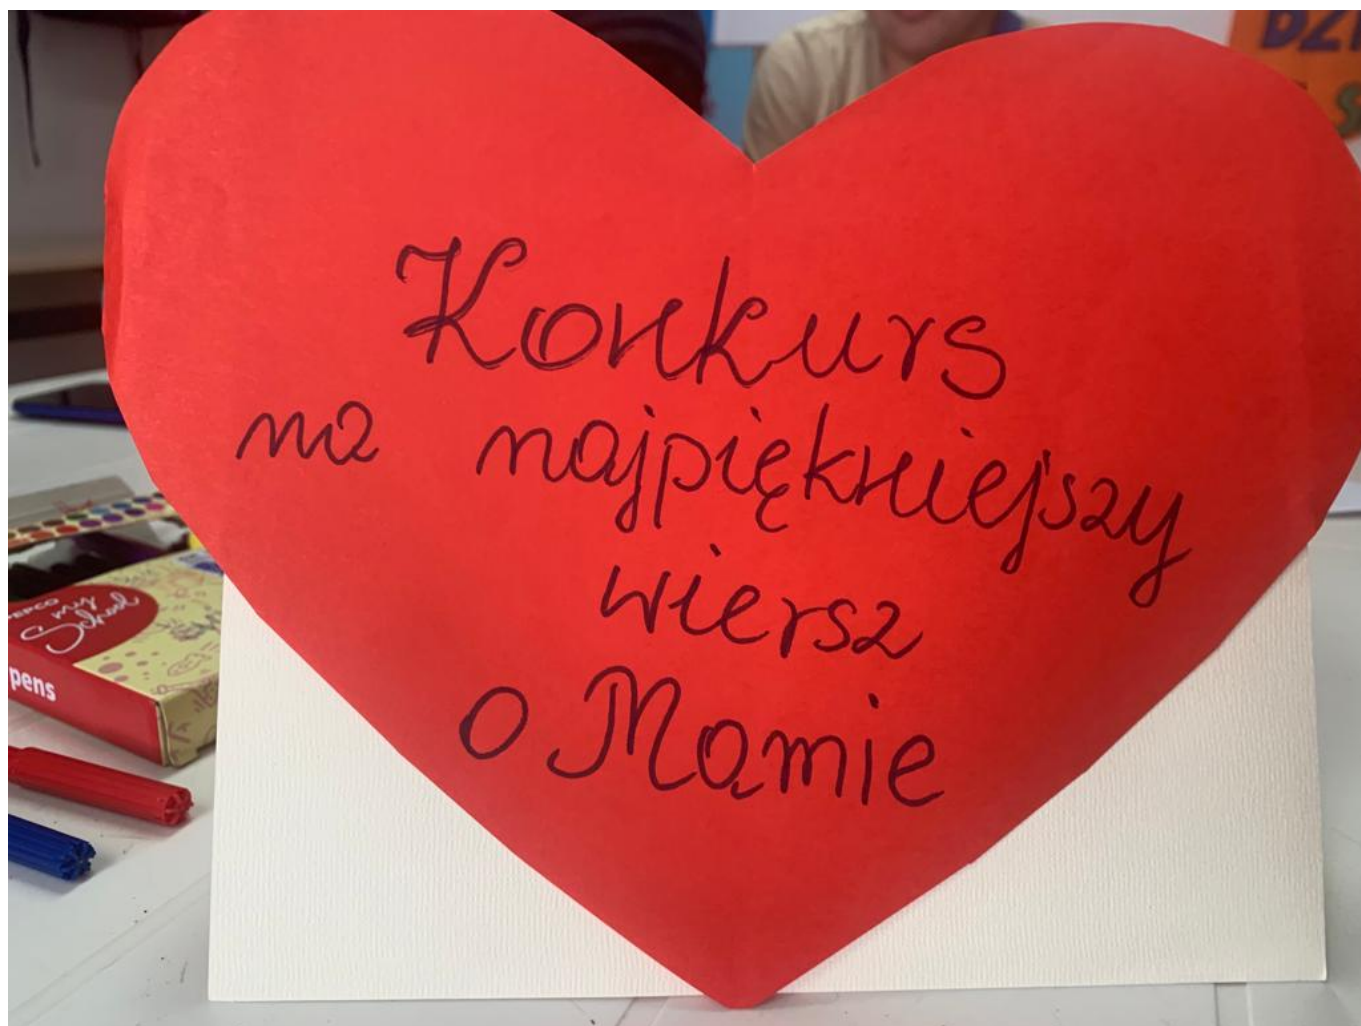 Konkurs
na najpiękniejszy
wiersz
o Mamie
PEPCO
my
School
pens